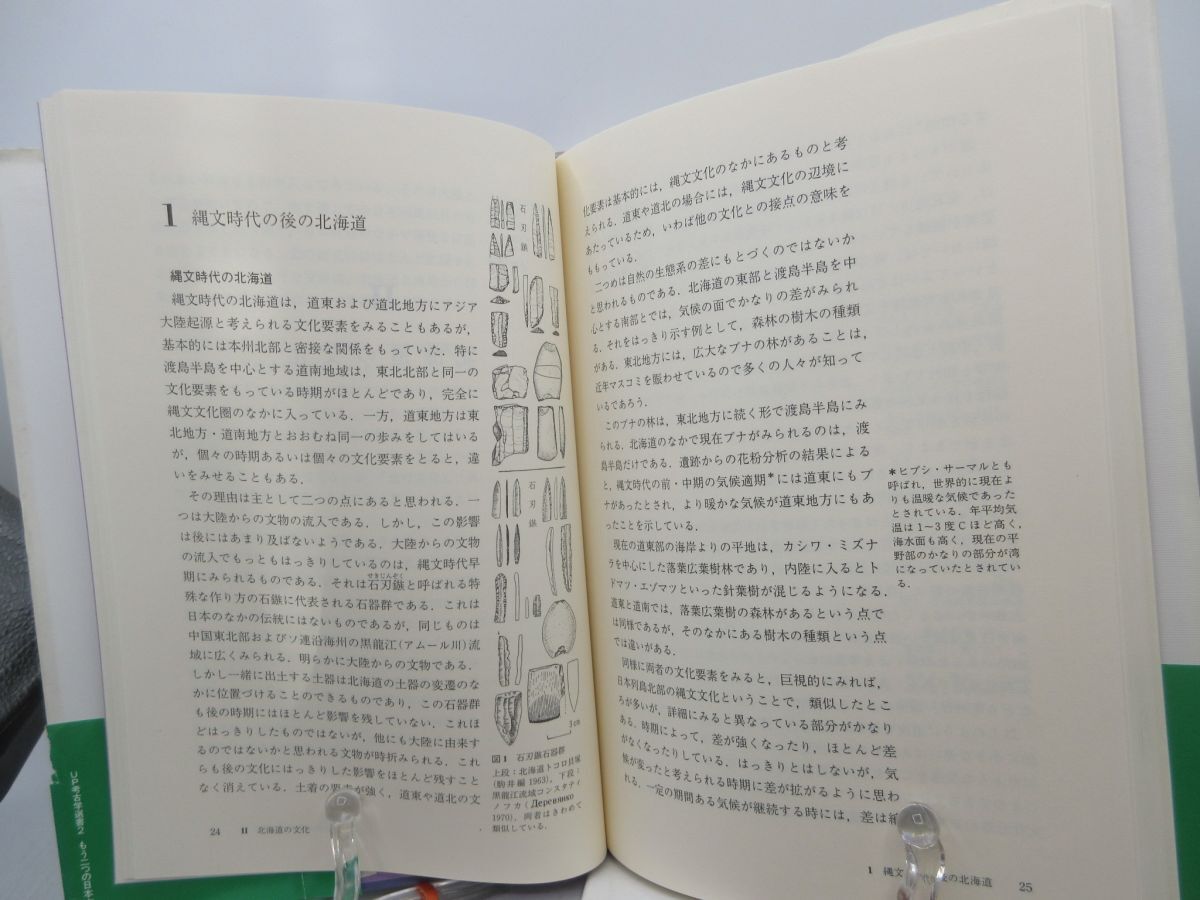 1 縄文時代の後の北海道
縄文時代の北海道
縄文時代の北海道は，道東および道北地方にアジア
大陸起源と考えられる文化要素をみることもあるが，
基本的には本州北部と密接な関係をもっていた．特に
渡島半島を中心とする道南地域は，東北北部と同一の
文化要素をもっている時期がほとんどであり，完全に
縄文文化圏のなかに入っている．一方，道東地方は東
北地方・道南地方とおおむね同一の歩みをしてはいる
が，個々の時期あるいは個々の文化要素をとると，違
いをみせることもある．
その理由は主として二つの点にあると思われる．一
つは大陸からの文物の流入である．しかし，この影響
は後にはあまり及ばないようである．大陸からの文物
の流入でもっともはっきりしているのは，縄文時代早
せきじんぞく
期にみられるものである．それは石刃鏃と呼ばれる特
殊な作り方の石鏃に代表される石器群である．これは
日本のなかの伝統にはないものであるが，同じものは
中国東北部およびソ連沿海州の黒龍江（アムール川）流
域に広くみられる．明らかに大陸からの文物である．
しかし一緒に出土する土器は北海道の土器の変遷のな
かに位置づけることのできるものであり，この石器群
も後の時期にはほとんど影響を残していない．これほ
どはっきりしたものではないが，他にも大陸に由来す
るのではないかと思われる文物が時折みられる．これ
らも後の文化にはっきりした影響をほとんど残すこと
なく消えている．土着の要素が強く，道東や道北の文
石刃鏃
石刃鏃
3cm
図1 石刃鏃石器群
上段：北海道トコロ貝塚
（駒井編 1963），下段：
黒龍江流域コンスタンチ
ノフカ（Деревянко
1970），両者はきわめて
類似している．
24 II 北海道の文化
化要素は基本的には，縄文文化のなかにあるものと考
えられる．道東や道北の場合には，縄文文化の辺境に
あたっているため，いわば他の文化との接点の意味を
ももっている．
二つめは自然の生態系の差にもとづくのではないか
と思われるものである．北海道の東部と渡島半島を中
心とする南部とでは，気候の面でかなりの差がみられ
る．それをはっきり示す例として，森林の樹木の種類
がある．東北地方には，広大なブナの林があることは，
近年マスコミを賑わせているので多くの人々が知って
いるであろう．
このブナの林は，東北地方に続く形で渡島半島にみ
られる．北海道のなかで現在ブナがみられるのは，渡
島半島だけである．遺跡からの花粉分析の結果による
と，縄文時代の前・中期の気候適期＊には道東にもブ
ナがあったとされ，より暖かな気候が道東地方にもあ
ったことを示している．
現在の道東部の海岸よりの平地は，カシワ・ミズナ
ラを中心にした落葉広葉樹林であり，内陸に入るとト
ドマツ・エゾマツといった針葉樹が混じるようになる．
道東と道南では，落葉広葉樹の森林があるという点で
は同様であるが，そのなかにある樹木の種類という点
では違いがある．
同様に両者の文化要素をみると，巨視的にみれば，
日本列島北部の縄文文化ということで，類似したとこ
ろが多いが，詳細にみると異なっている部分がかなり
ある．時期によって，差が強くなったり，ほとんど差
がなくなったりしている．はっきりとはしないが，気
候が変ったと考えられる時期に差が拡がるように思わ
れる．一定の期間ある気候が継続する時には，差は縮
＊ヒプシ・サーマルとも
呼ばれ，世界的に現在よ
りも温暖な気候であった
とされている．年平均気
温は1−3度Cほど高く，
海水面も高く，現在の平
野部のかなりの部分が湾
になっていたとされてい
る．
1 縄文時代の後の北海道 25
UP考古学選書2 もう二つの日本